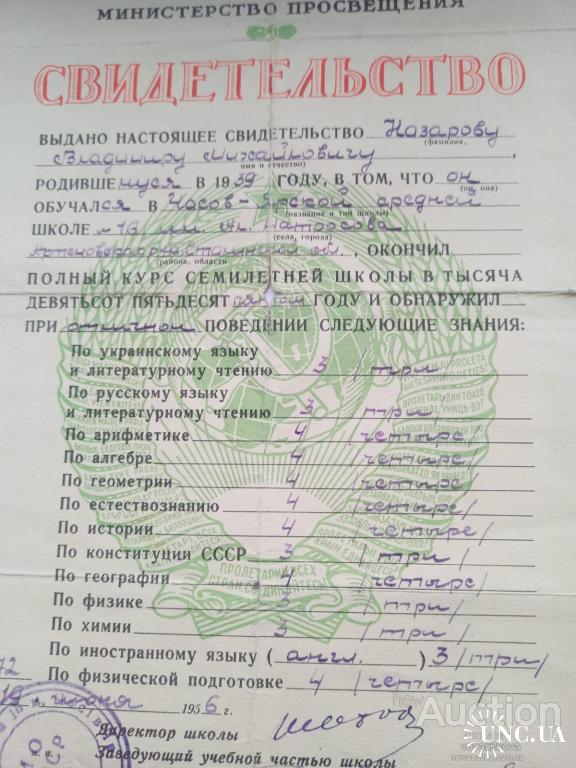 МИНИСТЕРСТВО ПРОСВЕЩЕНИЯ
СВИДЕТЕЛЬСТВО
ВЫДАНО НАСТОЯЩЕЕ СВИДЕТЕЛЬСТВО Назарову
(фамилия,
Владимиру Михайловичу ,
имя и отчество)
РОДИВШЕмуся В 1939 ГОДУ, В ТОМ, ЧТО он
(он, она)
ОБУЧАЛся В Часов-Ярской средней
(название и тип школы)
ШКОЛЕ -16 им. Матросова
(села, города)
Сталинской обл., ОКОНЧИЛ
(района, области
ПОЛНЫЙ КУРС СЕМИЛЕТНЕЙ ШКОЛЫ В ТЫСЯЧА
ДЕВЯТЬСОТ ПЯТЬДЕСЯТ ГОДУ И ОБНАРУЖИЛ
ПРИ отличном ПОВЕДЕНИИ СЛЕДУЮЩИЕ ЗНАНИЯ:
По украинскому языку
и литературному чтению 3 /три/
По русскому языку
и литературному чтению 3 /три/
По арифметике 4 /четыре/
По алгебре 4 /четыре/
По геометрии 4 /четыре/
По естествознанию 4 /четыре/
По истории 4 /четыре/
По конституции СССР 3 /три/
По географии 4 /четыре/
По физике 3 /три/
По химии 3 /три/
По иностранному языку (англ.) 3 /три/
По физической подготовке 4 /четыре/
19 июня 1956 г.
Директор школы
Заведующий учебной частью школы
ПРОЛЕТАРИИ ВСЕХ
СТРАН, СОЕДИНЯЙТЕСЬ!
newAuction
UNC.UA